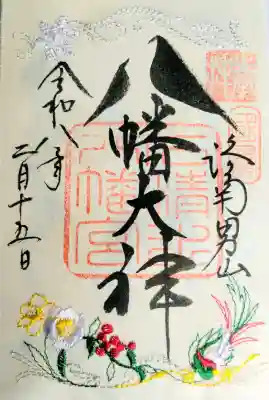 洛南男山
八幡大神
石清水
八幡宮
令和八年
二月十五日